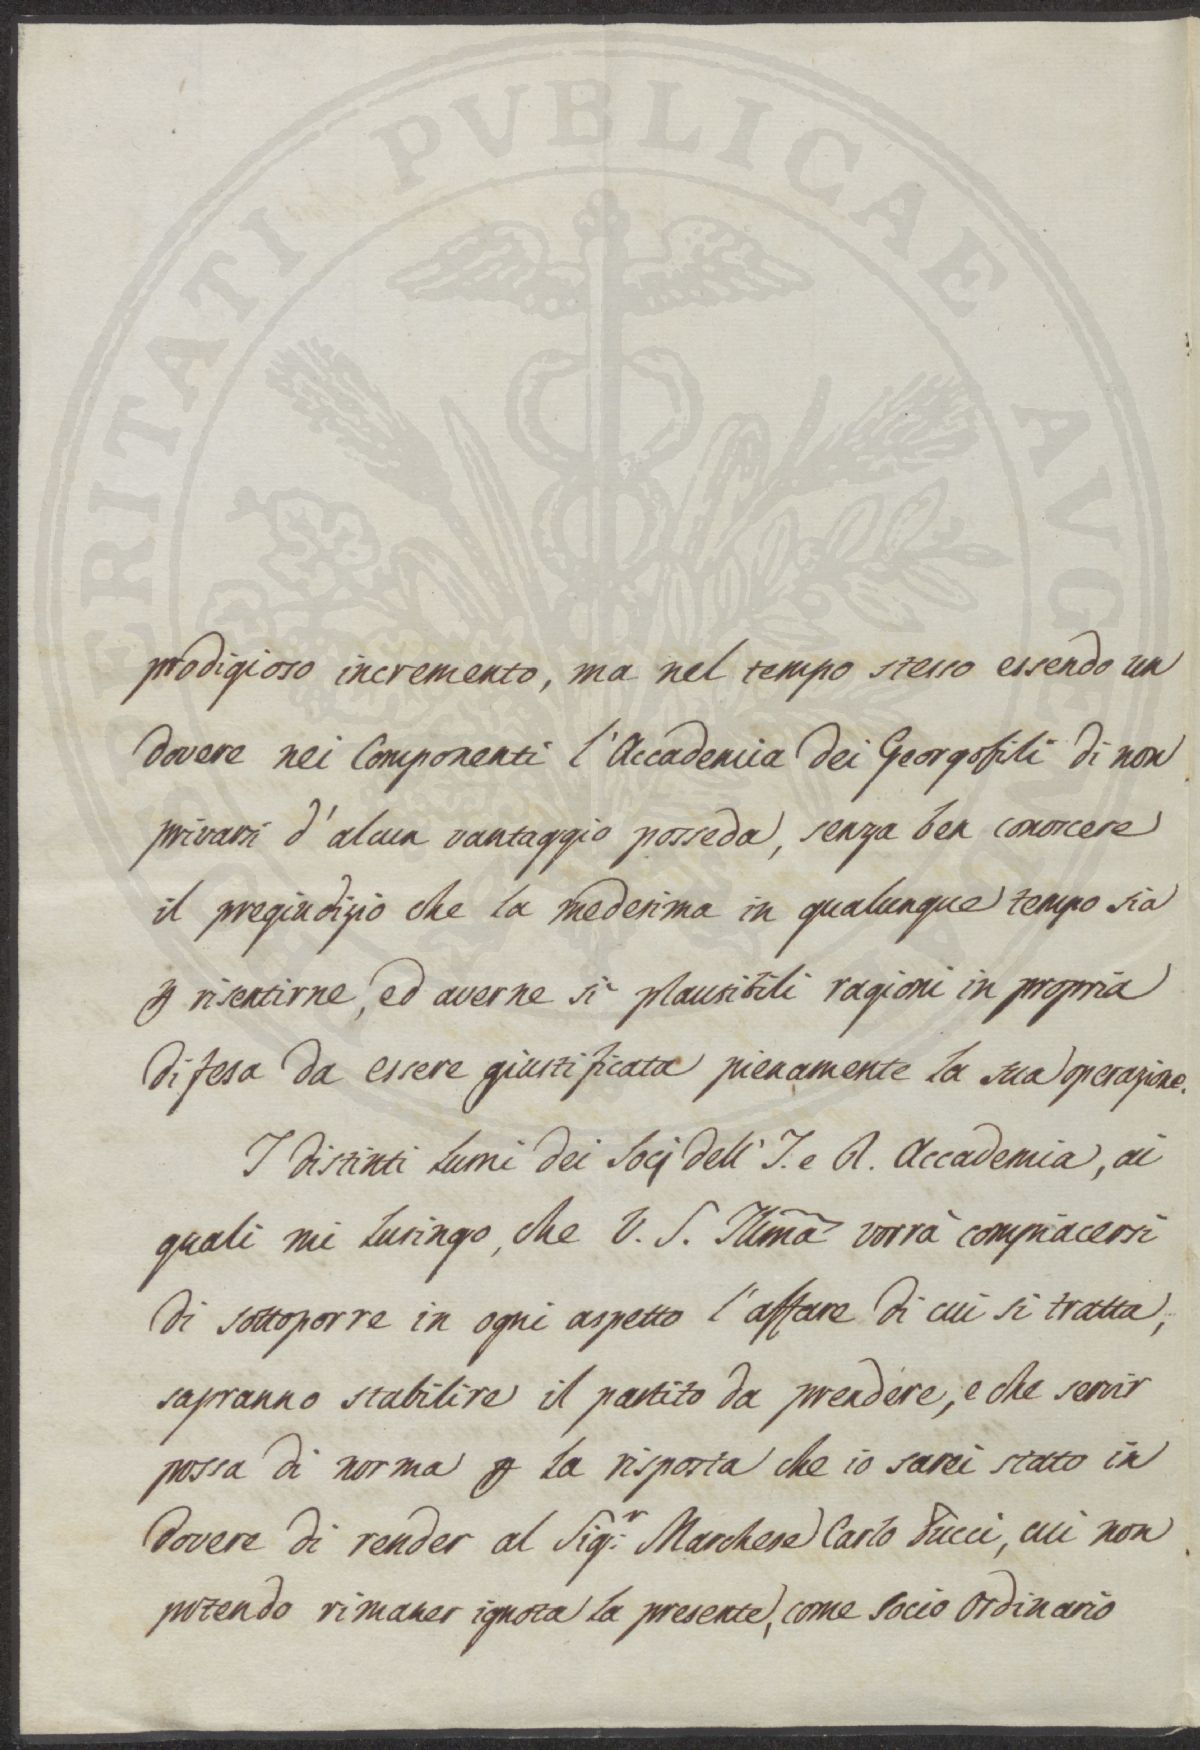 PROSPERITATI PVBLICAE AVGENDAE
prodigioso incremento, ma nel tempo stesso essendo un
dovere nei Componenti l'Accademia dei Georgofili di non
privarsi d'alcun vantaggio posseda, senza ben conoscere
il pregiudizio che la medesima in qualunque tempo sia
p risentirne, ed averne sì plausibili ragioni in propria
difesa da essere giustificata pienamente la sua operazione.
I distinti lumi dei Socj dell' I. e R. Accademia, ai
quali mi lusingo, che V. S. Illma vorrà compiacersi
di sottoporre in ogni aspetto l'affare di cui si tratta,
sapranno stabilire il partito da prendere, e che servir
possa di norma p la risposta che io sarei stato in
dovere di render al Sig.r Marchese Carlo Pucci, cui non
potendo rimaner ignota la presente, come Socio Ordinario